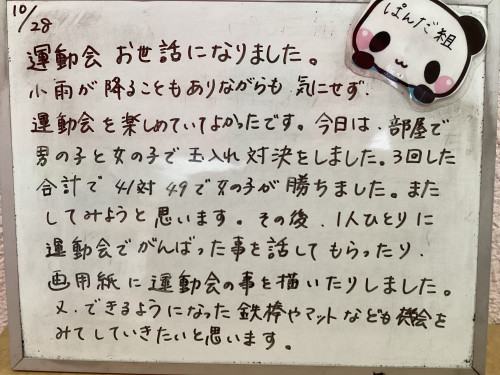 10/28
ぱんだ組
運動会 お世話になりました。
小雨が降ることもありながらも 気にせず、
運動会を楽しめていてよかったです。今日は、部屋で
男の子と女の子で玉入れ対決をしました。3回した
合計で 41対49で女の子が勝ちました。また
してみようと思います。その後、1人ひとりに
運動会でがんばった事を話してもらったり、
画用紙に運動会の事を描いたりしました。
又、できるようになった鉄棒やマットなども機会を
みてしていきたいと思います。